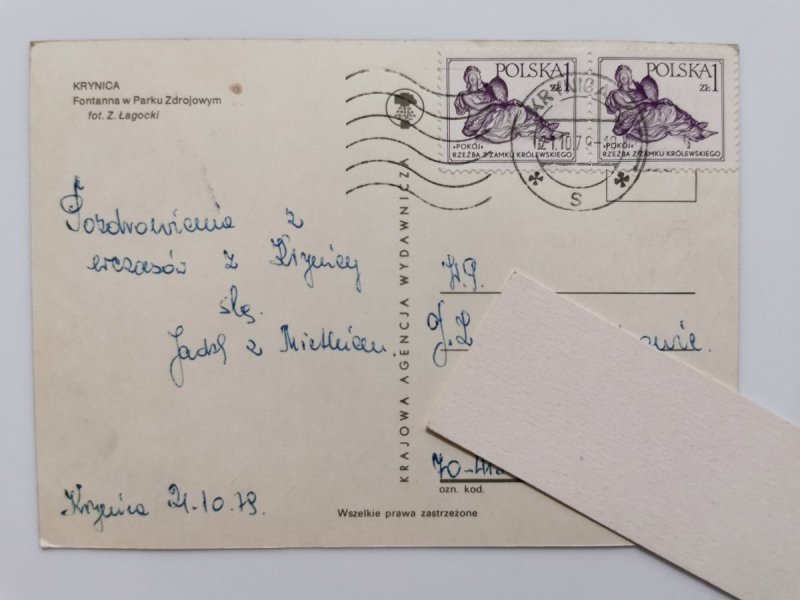 KRYNICA
Fontanna w Parku Zdrojowym
fot. Z. Łagocki
POLSKA 1 ZŁ
»POKÓJ«
RZEŹBA Z ZAMKU KRÓLEWSKIEGO
POLSKA 1 ZŁ
»POKÓJ«
RZEŹBA Z ZAMKU KRÓLEWSKIEGO
KRYNICA
21.10.7
s
KRAJOWA AGENCJA WYDAWNICZA
Pozdrowienia z
wczasów z Krynicy
ślą
Jadzia z
Krynica 21.10.79.
W.P.
J.Z
70-
ozn. kod.
Wszelkie prawa zastrzeżone